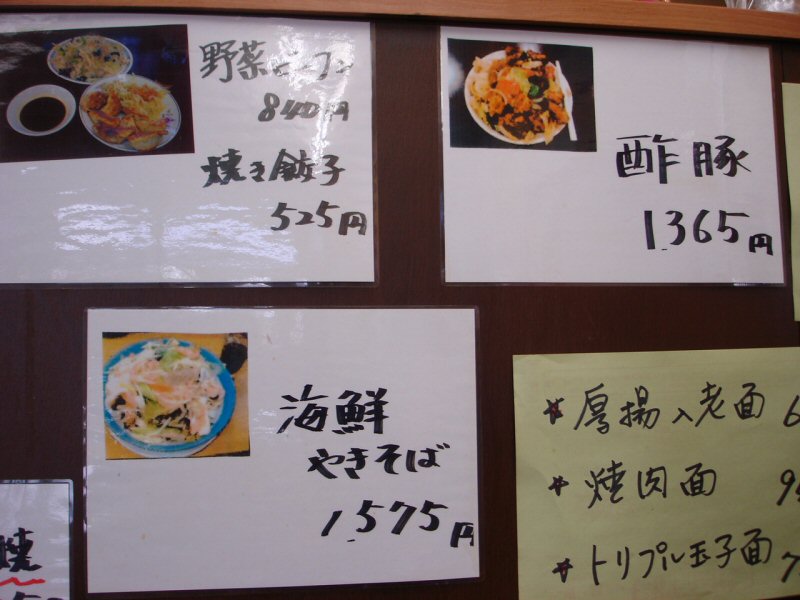 野菜ビーフン
840円
焼き餃子
525円
酢豚
1,365円
海鮮
やきそば
1,575円
厚揚入老面 6
焼肉面 9
トリプル玉子面 7
焼